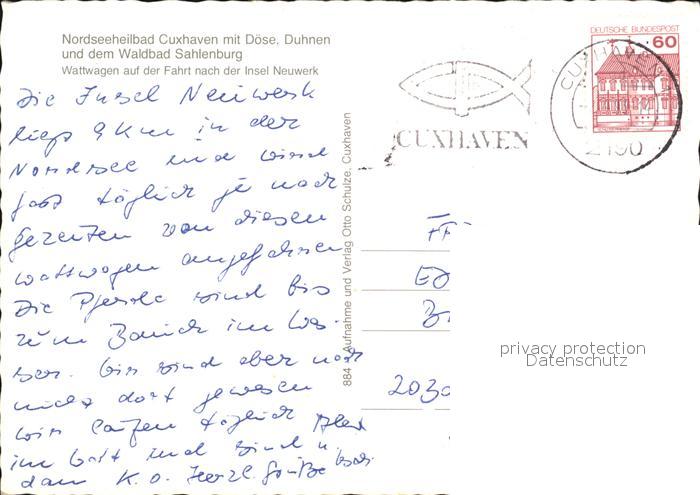 Nordseeheilbad Cuxhaven mit Döse, Duhnen
und dem Waldbad Sahlenburg
Wattwagen auf der Fahrt nach der Insel Neuwerk
Die Insel Neuwerk
liegt 9 km in der
Nordsee und wird
fast täglich je nach
Gezeiten von diesen
Wattwagen angefahren
Die Pferde sind bis
zum Bauch im Was-
ser. Wir sind aber noch
nicht dort gewesen
Wir laufen täglich
im Watt und sind
dann K.O. Herzl. Grüße
884 Aufnahme und Verlag Otto Schulze, Cuxhaven
CUXHAVEN
DEUTSCHE BUNDESPOST
60
CUXHAVEN
2190
2030
privacy protection
Datenschutz